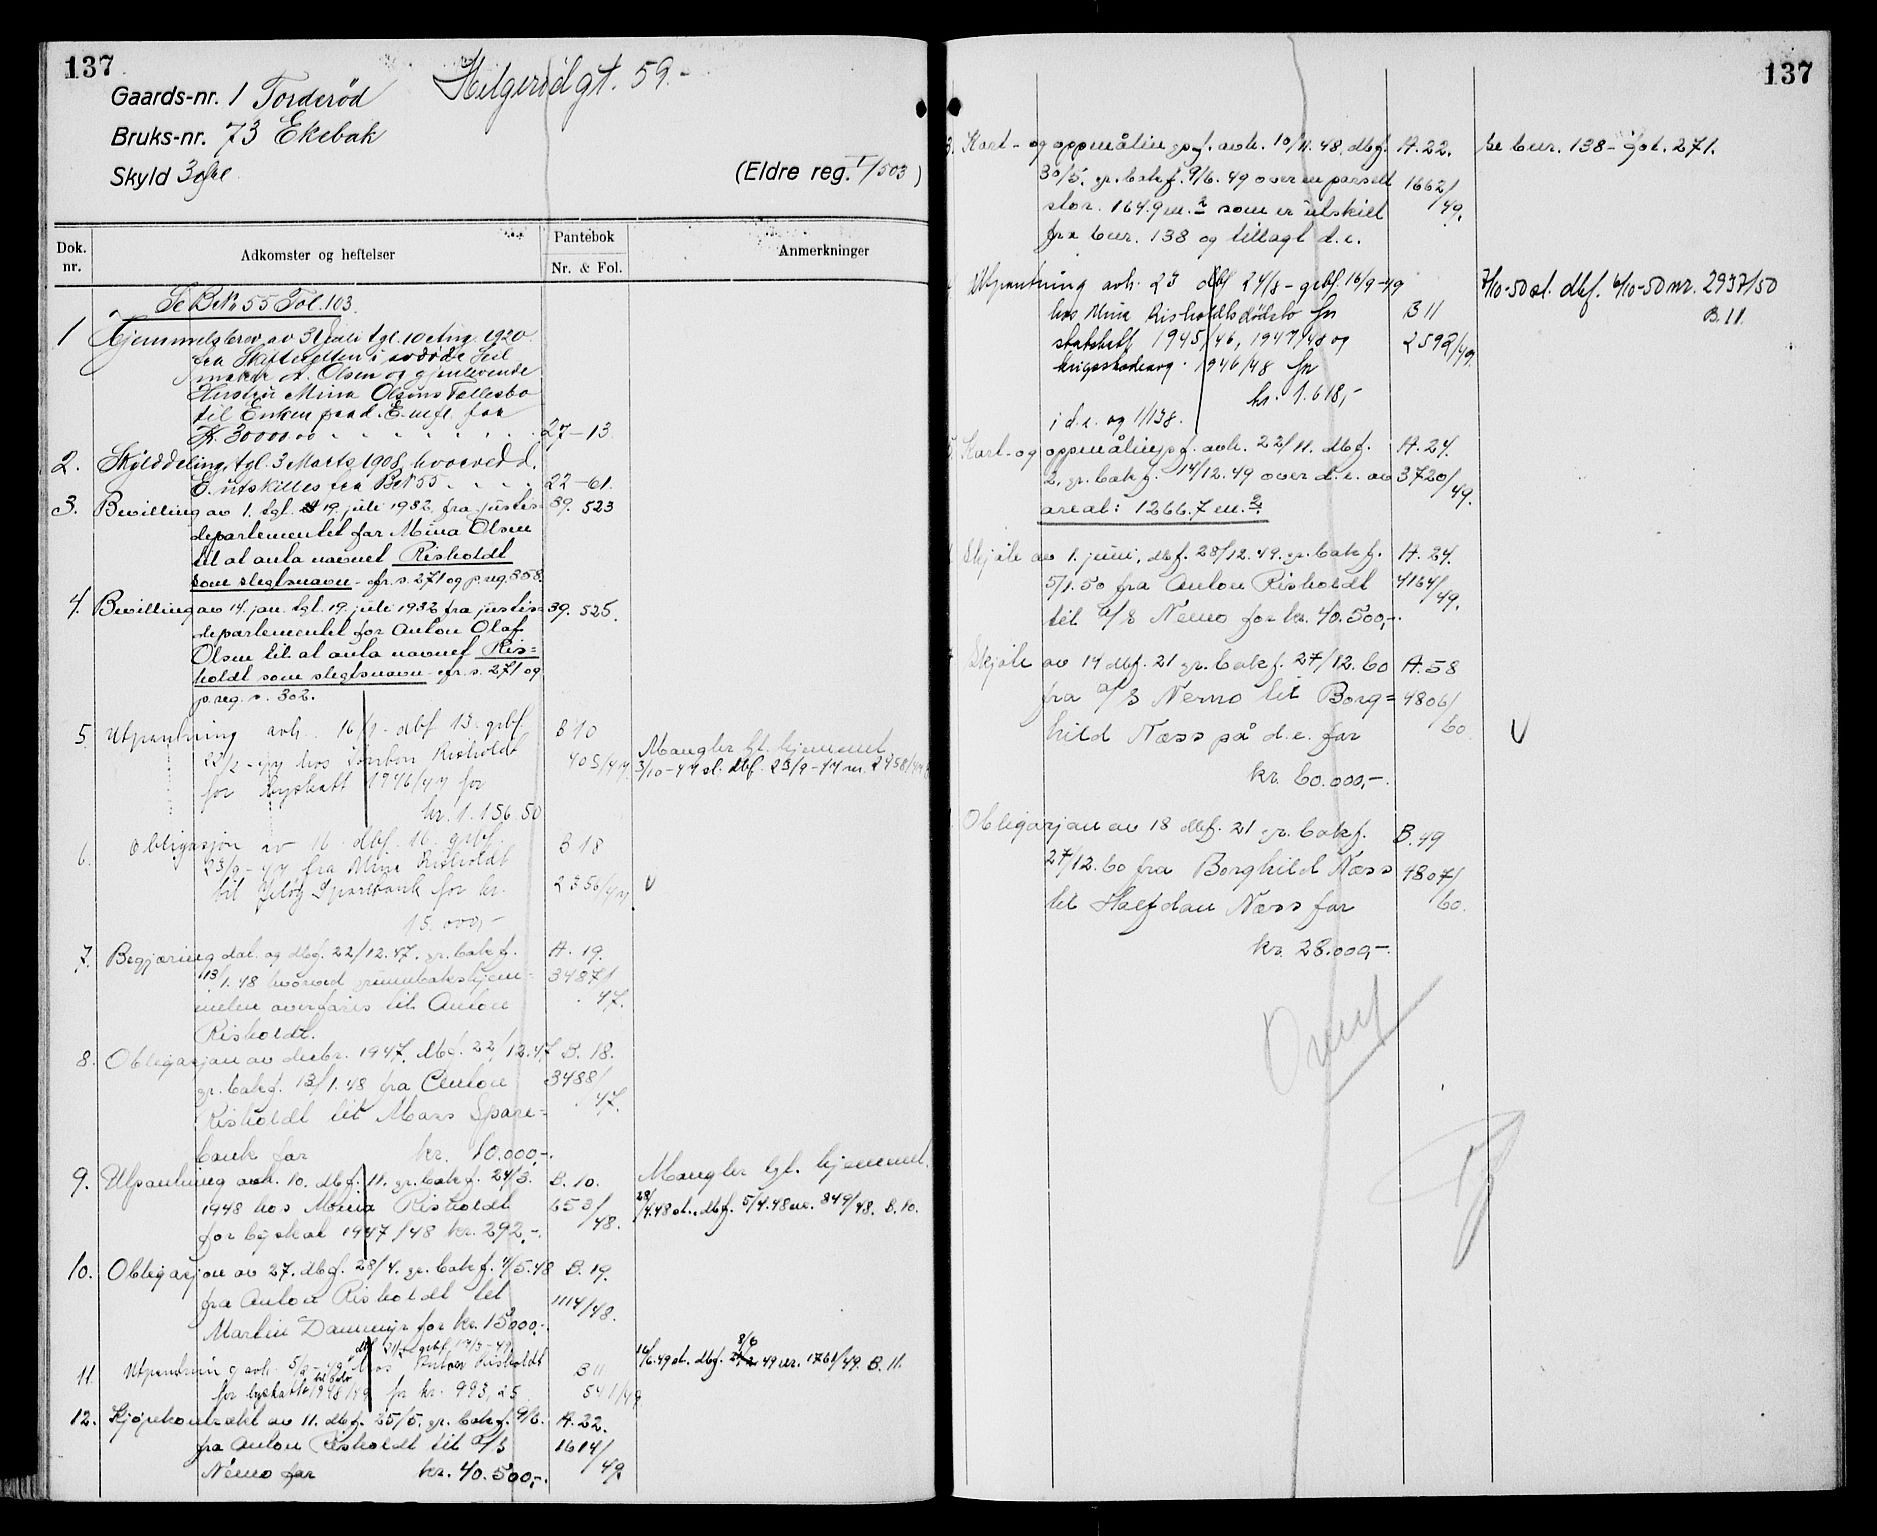 137
Helgerødgt. 59.-
Gaards-nr. 1 Torderød
Bruks-nr. 73 Ekebak
Skyld 3 øre
(Eldre reg. I/503)
Dok. nr.
Adkomster og heftelser
Pantebok
Nr. & Fol.
Anmerkninger
Se BNo 55 Fol. 103.
1 Hjemmelsbrev av 31 juli tgl. 10 Aug. 1920
fra Skifteretten i avdøde Seil
maker A. Olsen og gjenlevende
Hustru Mina Olsens Fællesbo
til Enken paa d. E. m.fl. for
K. 30000.00 27-13
2. Skylddeling, tgl. 3 Marts 1908, hvorved d.
E. utskilles fra BNo 55 22-61.
3. Bevilling av 1. tgl. 19. juli 1932, fra justis- 39. 523
departementet for Mina Olsen
til at anta navnet Risholdt
som slegtsnavn - cfr. s. 271 og p.reg. 358.
4. Bevilling av 14. jan. tgl. 19. juli 1932 fra justis- 39. 525.
departementet for Anton Olaf
Olsen til at anta navnet Ris=
holdt som slegtsnavn - cfr. s. 271 og
p.reg. s. 302.
5. Utpantning avh. 16/1 - dbf 13. grbf. B 10
22/2 - 47 hos Risholdt 405/47
for byskatt 1946/47 for
kr. 1.156.50
Mangler tgl. hjemmel
3/10-47 sl. dbf. 23/9-47 nr. 2458/47
6. Obligasjon av 16. dbf. 16. grbf. B 18
23/9-47 fra Mina Risholdt
til Jeløy Sparebank for kr. 2356/47. V
15.000,-
7. Begjæring dat. og dbf. 22/12.47, gr. bokf. A. 19.
13/1.48 hvorved grunnbokshjem= 3487/
melen overføres til Anton 47.
Risholdt.
8. Obligasjon av desbr. 1947. dbf. 22/12.47 B. 18.
gr. bokf. 13/1.48 fra Anton 3488/
Risholdt til Moss Spare- 47.
bank for kr. 10.000,-.
9. Utpantning avh. 10. dbf. 11. gr. bokf. 24/3. B. 10.
1948 hos Minia Risholdt 653/
for byskat 1947/48 kr. 292,-. 48.
Mangler tgl. hjemmel.
28/4.48 sl. dbf. 5/4.48 nr. 849/48. B. 10.
10. Obligasjon av 27. dbf. 28/4. gr. bokf. 4/5.48 B. 19.
fra Anton Risholdt til 1114/48.
Martin Dammyr for kr. 15000,-.
11. Utpantning avh. 5/2-49 hos Anton Risholdt B 11
for byskatt 1948/49 for kr. 993,25 541/49
16/6.49 sl. dbf. 8/6 49 nr. 1761/49. B. 11.
12. Kjøpekontrakt av 11. dbf. 25/5. gr. bokf. 9/6. A. 22.
fra Anton Risholdt til A/S 1614/
Nemo for kr. 40.500,-. 49.
137
3. Kart- og oppmålingsf. avh. 10/11.48. dbf. A. 22. Se bnr. 138 - fol. 271.
30/5. gr. bokf. 9/6. 49 over en parsell 1662/
stor. 164.9 m.2 som er utskilt 49.
fra bnr. 138 og tillagt d.e.
Utpantning avh. 23 dbf 24/8 - grbf. 16/9-49
hos Mina Risholdts dødsbo for B 11
statskatt 1945/46, 1947/48 og 2592/49.
krigsskadeavg. 1946/48 for
kr. 1.618,-
i d.e. og 1/138.
7/10-50 sl. dbf. 4/10-50 nr. 2937/50
B. 11.
Kart- og oppmålingsf. avh. 22/11. dbf. A. 24.
2. gr. bokf. 14/12. 49 over d.e. av 3720/
areal: 1266.7 m.2. 49.
Skjøte av 1. juni, dbf. 28/12. 49. gr. bokf. A. 24.
5/1.50 fra Anton Risholdt 4164/
til A/S Nemo for kr. 40.500,-. 49.
Skjøte av 14 dbf. 21 gr. bokf. 27/12. 60 A. 58
fra A/S Nemo til Borg= 4806/
hild Næss på d.e. for 60. V
kr. 60.000,-.
Obligasjon av 18 dbf. 21 gr. bokf. B. 49
27/12.60 fra Borghild Næss 4807/
til Halfdan Næss for 60.
kr. 28.000,-.